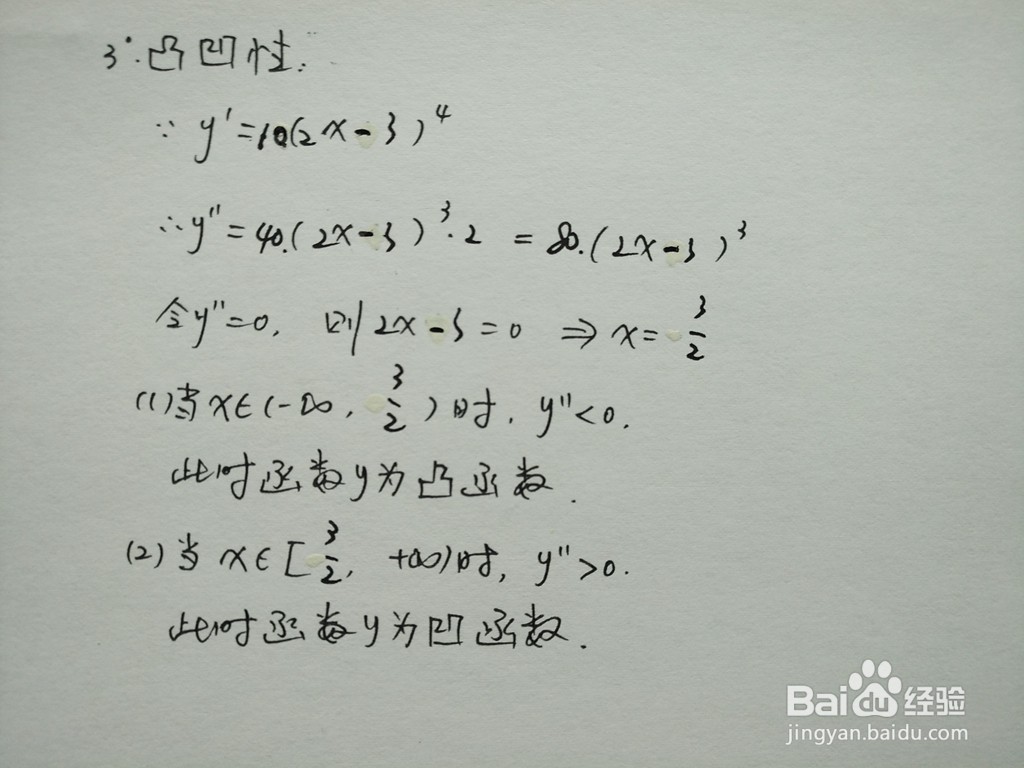 3°.凸凹性:
∵ y'=10(2x-3)^4
∴y''=40.(2x-3)^3·2 =80.(2x-3)^3
令y''=0, 则2x-3=0 ⇒ x=3/2
(1)当x∈(-∞, 3/2)时, y''<0.
此时函数y为凸函数.
(2)当x∈[3/2, +∞)时, y''>0.
此时函数y为凹函数.
Bai du 经验
jingyan.baidu.com